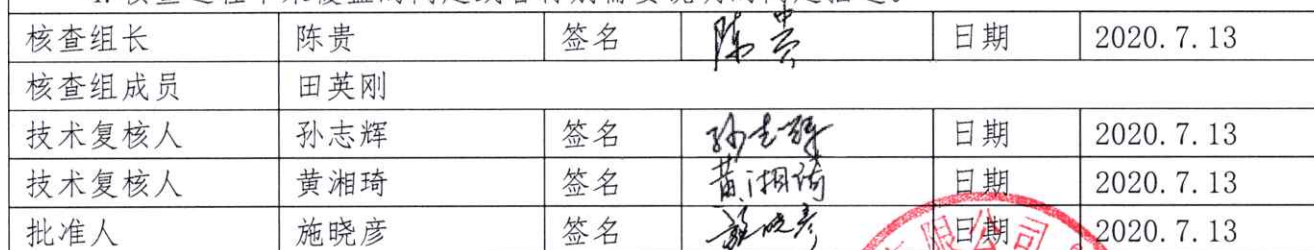 核查组长 陈贵 签名 陈贵 日期 2020.7.13
核查组成员 田英刚
技术复核人 孙志辉 签名 孙志辉 日期 2020.7.13
技术复核人 黄湘琦 签名 黄湘琦 日期 2020.7.13
批准人 施晓彦 签名 施晓彦 日期 2020.7.13
有限公司